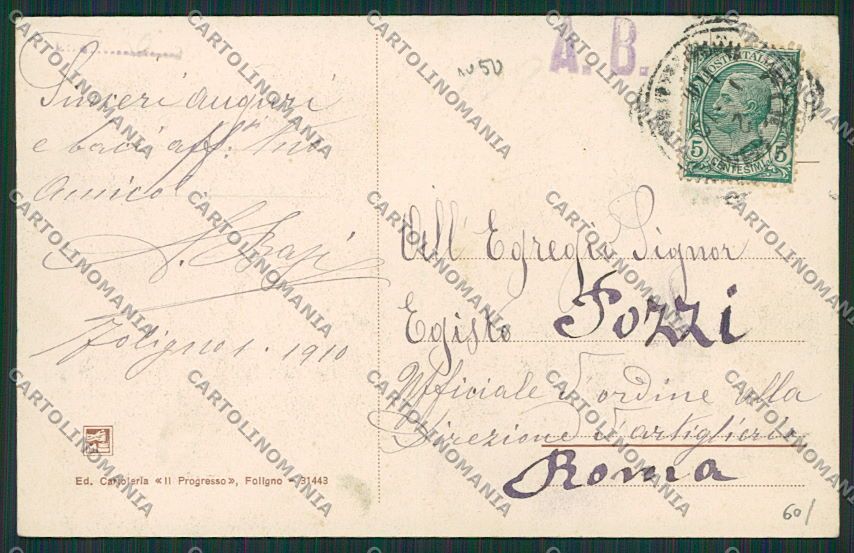 A. B.
N 50
POSTE ITALIANE
5 CENTESIMI 5
Sinceri auguri
e baci aff.mi tuo
Amico
Foligno 1. 1910
All' Egregio Signor
Egisto Pozzi
Ufficiale d'ordine alla
Direzione d'artiglieria
Roma
Ed. Cartoleria «Il Progresso», Foligno - 31443
60/
CARTOLINOMANIA